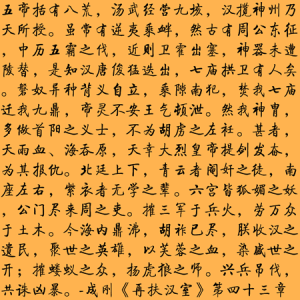 五帝括有八荒，汤武经营九垓，汉揽神州乃
天所授。虽常有逆夷乘衅，然古有周公东征
，中历五霸之伐，近则卫霍出塞，神器未遭
陵替，是知汉唐俊猛迭出，七庙拱卫有人矣
。磐奴异种背义自立，乘隙南犯，焚我七庙
迁我九鼎，帝灵不安王气顿泄。然我神胄，
多做首阳之义士，不为胡虏之左衽。甚者，
天雨血、海吞原，天幸大烈皇帝提剑发奋，
为其报仇。北廷上下，青云者阉奸之徒，南
座左右，紫衣者无学之辈。六宫皆狐媚之妖
，公门尽来周之吏。摧三军于兵火，劳万众
于土木。今海内鼎沸，胡祚已尽，朕收汉之
遗民，聚世之英雄，以芙蓉之血，染盛世之
开；摧蝼蚁之众，扬虎狼之师。兴兵吊伐，
共诛凶暴。-成刚《再扶汉室》第四十三章